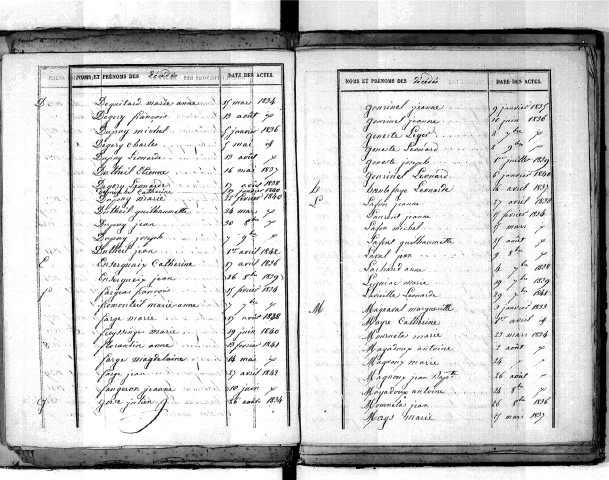 NOMS ET PRÉNOMS DES décédés DATE DES ACTES.
D Dequitard marie anne 15 mars 1834
Degery françois 13 août
Dupuy michel 5 janvier 1836
Degery Charles 5 mai
Dupuy Léonarde 13 août
Dutheil Etienne 16 mai 1837
Dugery Léonard 17 août 1838
Dupuy marie 25 février 1840
Dutheil guilhaumette 24 mars
Dupuy jean 30 8bre
Dupuy joseph 7 9bre
Dutheil jean 1er avril 1842
E Enserguaix Catherine 17 avril 1836
Enserguaix jean 26 8bre 1839
f fargeas françois 15 février 1834
femonteil marie anne 17 7bre
farge marie 17 août 1838
feyssinge marie 19 juin 1840
florentin anne 13 février 1841
farge magdelaine 14 mai
farge jean 27 avril 1842
faugeron jeanne 20 juin
G gorse julien 26 août 1834
NOMS ET PRÉNOMS DES décédés DATE DES ACTES.
gonrinel jeanne 9 janvier 1835
gonrinel jeanne 20 juin 1836
geneste Léger 2 7bre
geneste Léonard 2 9bre
geneste joseph 1er juillet 1839
gonrinel Léonard 6 janvier 1840
Léonarde 16 avril 1837
L Lafon jeanne 27 avril 1838
Laurent jeanne 11 février 1834
Lafon michel 5 mars
Lafont guilhaumette 25 août
Laval jean 9 8bre
Lachaud anne 4 7bre 1838
Leymac marie 19 7bre 1839
Laveille Léonarde 29 7bre 1841
M Mageaval margueritte 2 janvier 1833
Mayre Catherine 1er avril
Mournetas marie 2 mars 1834
Mazadoux antoine 2 août
Magnoux marie 24
Magnoux jean Bapte 26 août
Mazadoux antoine 24 8bre
Mournetas jean 26 8bre 1836
Mays marie 15 mars 1837